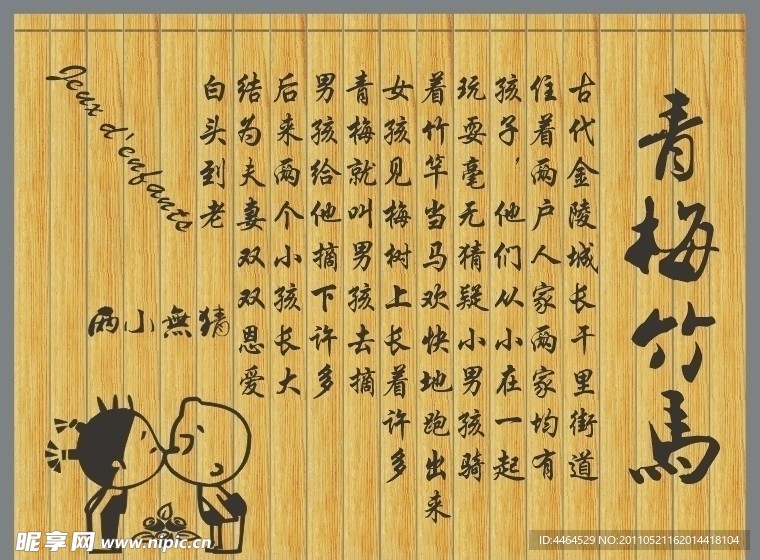 青梅竹馬
古代金陵城长干里街道
住着两户人家两家均有
孩子，他们从小在一起
玩耍毫无猜疑小男孩骑
着竹竿当马欢快地跑出来
女孩见梅树上长着许多
青梅就叫男孩去摘
男孩给他摘下许多
后来两个小孩长大
结为夫妻双双恩爱
白头到老
Jeux d'enfants
兩小無猜
昵享网 www.nipic.cn
ID:4464529 NO:20110521162014418104